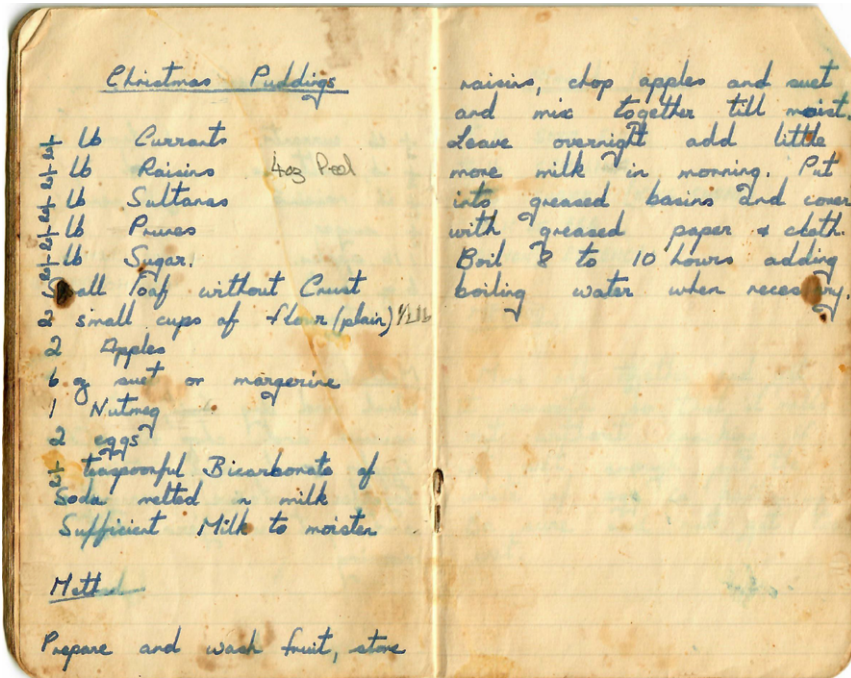 Christmas Puddings
½ lb Currants
½ lb Raisins 4oz Peel
½ lb Sultanas
½ lb Prunes
½ lb Sugar.
Small loaf without Crust
2 small cups of flour (plain) ½ lb
2 Apples
6 oz suet or margerine
1 Nutmeg
2 eggs
½ teaspoonful Bicarbonate of
Soda melted in milk
Sufficient Milk to moisten
Method
Prepare and wash fruit, stone
raisins, chop apples and suet
and mix together till moist.
Leave overnight add little
more milk in morning. Put
into greased basins and cover
with greased paper & cloth.
Boil 8 to 10 hours adding
boiling water when necessary.